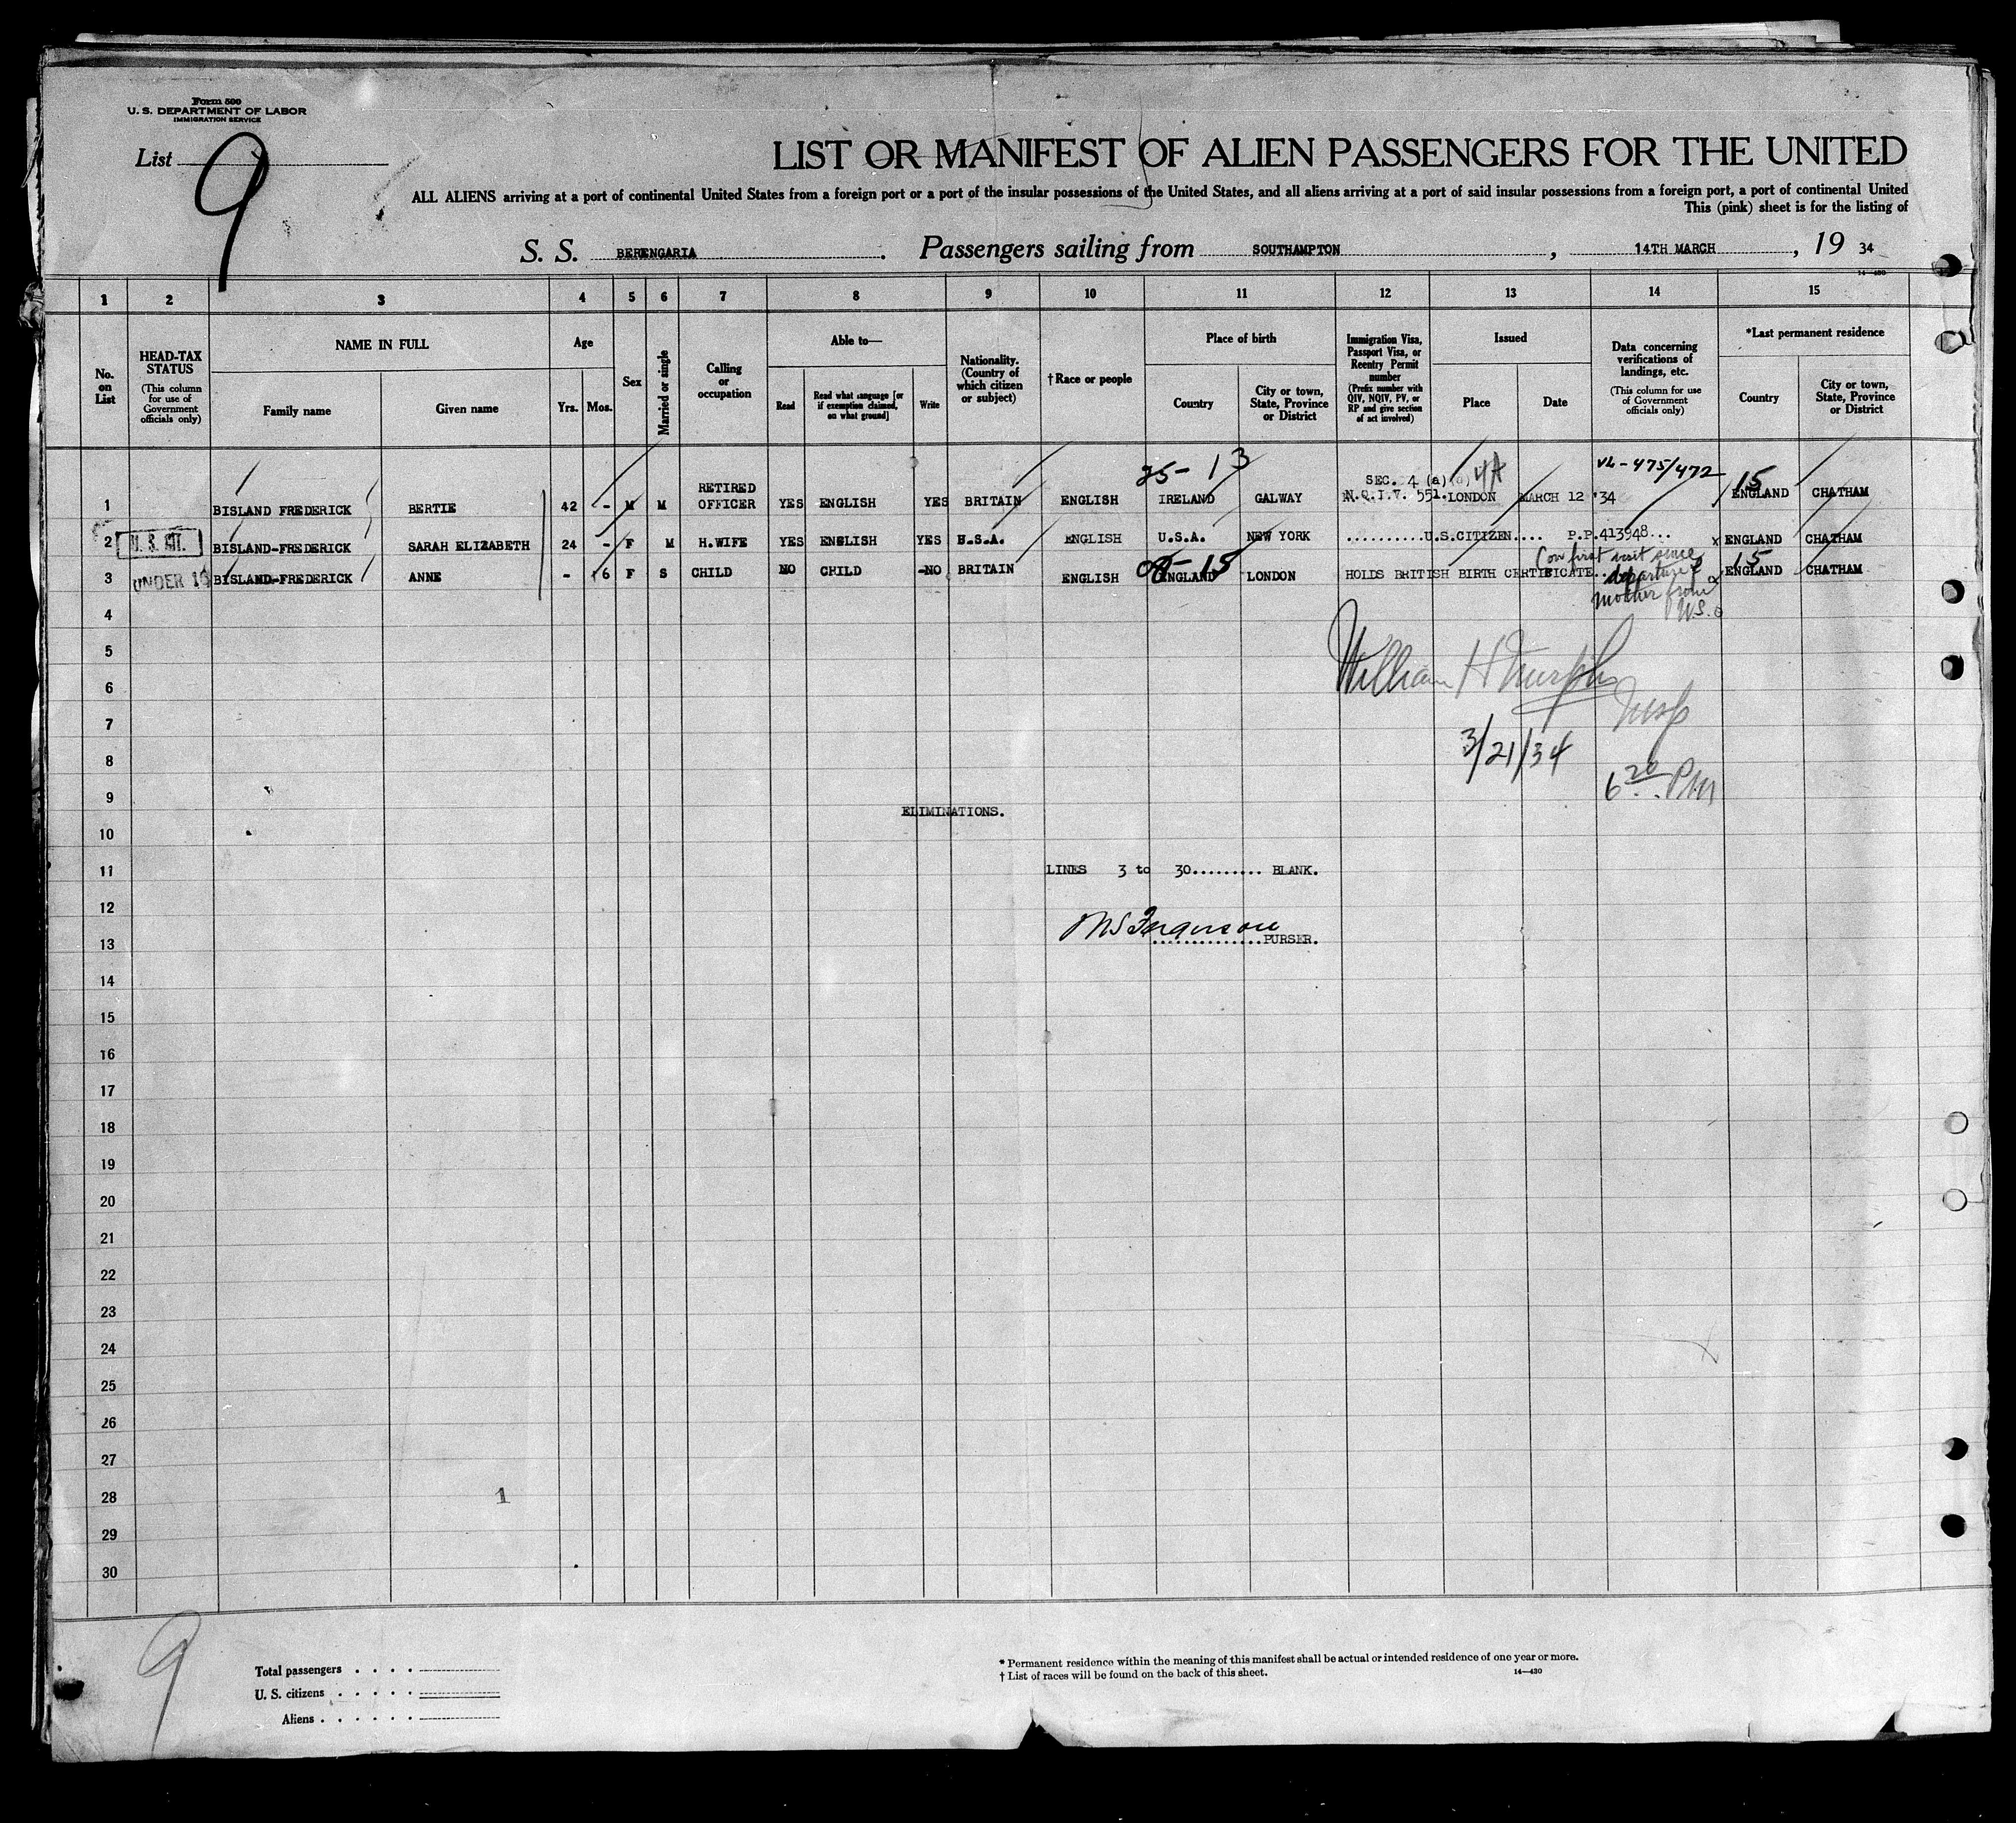 Form 500
U. S. DEPARTMENT OF LABOR
IMMIGRATION SERVICE
List 9
LIST OR MANIFEST OF ALIEN PASSENGERS FOR THE UNITED
ALL ALIENS arriving at a port of continental United States from a foreign port or a port of the insular possessions of the United States, and all aliens arriving at a port of said insular possessions from a foreign port, a port of continental United
This (pink) sheet is for the listing of
S. S. BERENGARIA. Passengers sailing from SOUTHAMPTON, 14TH MARCH, 19 34
14—430
1 2 3 4 5 6 7 8 9 10 11 12 13 14 15
No. on List
HEAD-TAX STATUS
(This column for use of Government officials only)
NAME IN FULL
Family name
Given name
Age
Yrs. Mos.
Sex
Married or single
Calling or occupation
Able to—
Read
Read what language [or if exemption claimed, on what ground]
Write
Nationality. (Country of which citizen or subject)
†Race or people
Place of birth
Country
City or town, State, Province or District
Immigration Visa, Passport Visa, or Reentry Permit number
(Prefix number with QIV, NQIV, PV, or RP and give section of act involved)
Issued
Place
Date
Data concerning verifications of landings, etc.
(This column for use of Government officials only)
*Last permanent residence
Country
City or town, State, Province or District
25-13
SEC. 4 (a) 4A
VL-475/472
15
1 BISLAND FREDERICK BERTIE 42 - M M RETIRED OFFICER YES ENGLISH YES BRITAIN ENGLISH IRELAND GALWAY N.Q.I.V. 551. LONDON MARCH 12 '34 ENGLAND CHATHAM
2 U. S. CIT. BISLAND-FREDERICK SARAH ELIZABETH 24 - F M H.WIFE YES ENGLISH YES U.S.A. ENGLISH U.S.A. NEW YORK ...........U.S.CITIZEN.... P.P.413948... x ENGLAND CHATHAM
3 UNDER 16 BISLAND-FREDERICK ANNE - 6 F S CHILD NO CHILD -NO BRITAIN ENGLISH ENGLAND LONDON HOLDS BRITISH BIRTH CERTIFICATE.. x ENGLAND CHATHAM
15
(on first visit since
departure of
mother from
U.S.
4
5
William H Murphy
6
Insp
7
3/21/34
8
6 20 PM
9
ELIMINATIONS.
10
11
LINES 3 to 30......... BLANK.
12
13
Ferguson
..............PURSER.
14
15
16
17
18
19
20
21
22
23
24
25
26
27
28
1
29
30
9
Total passengers . . . .
U. S. citizens . . . . .
Aliens . . . . . .
* Permanent residence within the meaning of this manifest shall be actual or intended residence of one year or more.
† List of races will be found on the back of this sheet.
14—430